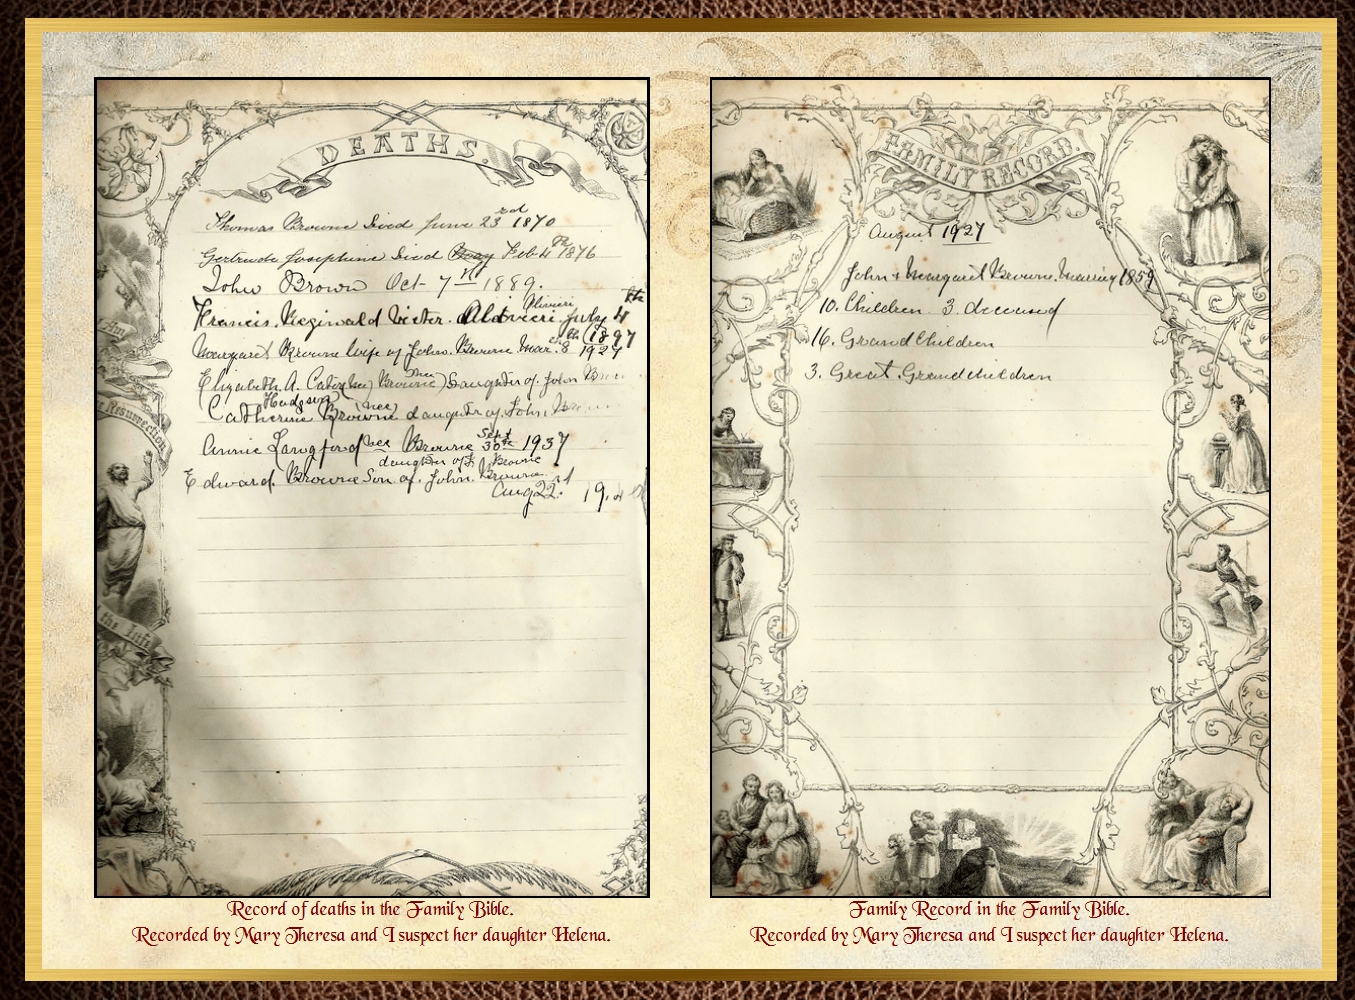 DEATHS.
Thomas Browne Died June 23rd 1870
Gertrude Josephine Died Feb 4th 1876
John Brown Oct 7th 1889.
Francis. Reginald Victor. Olivieri July 4th 1897
Margaret Browne Wife of John. Browne Mar. 8th 1927
Elizabeth A. (nee Browne) Daughter of. John
Catherine Hudgson (nee) Browne daughter of. John
Annie Langford nee Browne Sept 30th 1937
daughter of J. Browne
Edward. Browne Son of. John. Browne
Aug 22nd 19
Am
Resurrection
the Life
Record of deaths in the Family Bible.
Recorded by Mary Theresa and I suspect her daughter Helena.
FAMILY RECORD.
August 1927
John + Margaret Browne. Marriy 1859
10. Children 3. deceased
16. Grand Children
3. Great. Grandchildren
Family Record in the Family Bible.
Recorded by Mary Theresa and I suspect her daughter Helena.